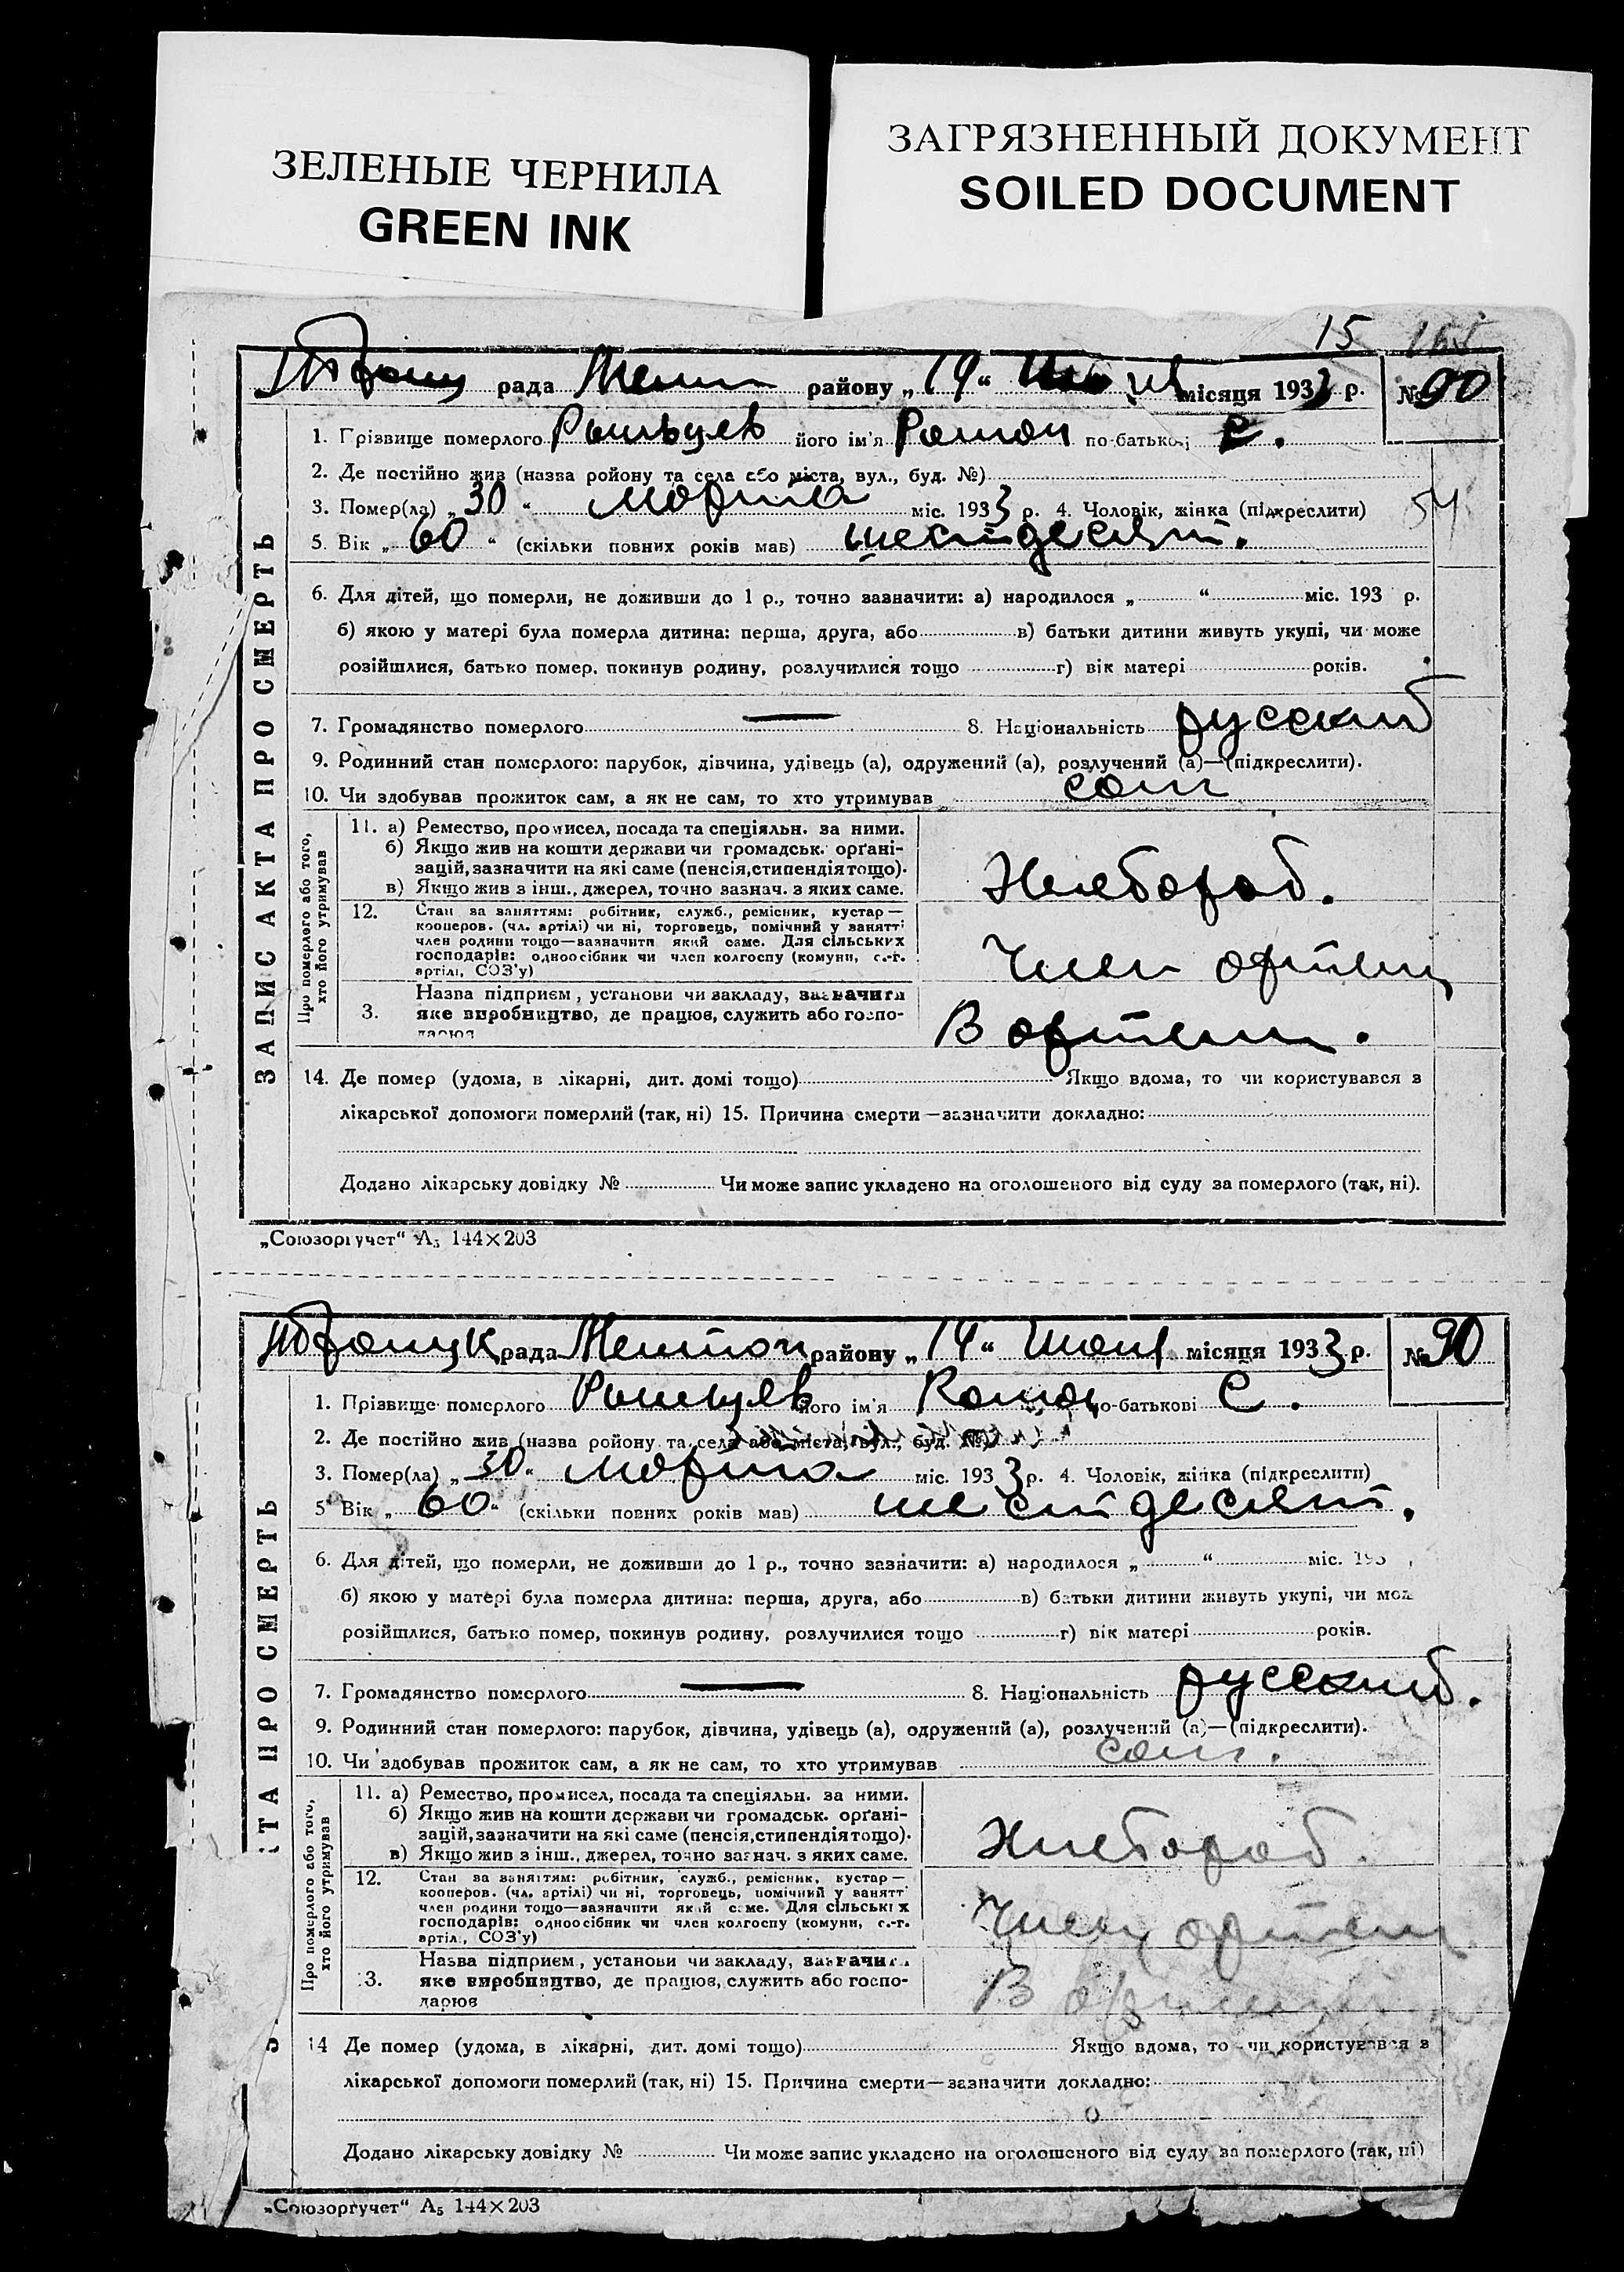 ЗЕЛЕНЫЕ ЧЕРНИЛА
GREEN INK
ЗАГРЯЗНЕННЫЙ ДОКУМЕНТ
SOILED DOCUMENT
15
рада району „14“ місяця 1933 р. № 90
1. Прізвище померлого його ім'я Роман по-батькові С.
2. Де постійно жив (назва ройону та села або міста, вул., буд. №)
3. Помер(ла) „30“ марта міс. 1933 р. 4. Чоловік, жінка (підкреслити)
54
5. Вік „60“ (скільки повних років мав) шестдесят.
6. Для дітей, що померли, не доживши до 1 р., точно зазначити: а) народилося „ “ міс. 193 р.
б) якою у матері була померла дитина: перша, друга, або в) батьки дитини живуть укупі, чи може
розійшлися, батько помер, покинув родину, розлучилися тощо г) вік матері років.
7. Громадянство померлого — 8. Національність русский
9. Родинний стан померлого: парубок, дівчина, удівець (а), одружений (а), розлучений (а)—(підкреслити).
10. Чи здобував прожиток сам, а як не сам, то хто утримував сам
ЗАПИС АКТА ПРО СМЕРТЬ
Про померлого або того, хто його утримував
11. а) Ремество, промисел, посада та спеціяльн. за ними.
б) Якщо жив на кошти держави чи громадськ. орґані-
зацій, зазначити на які саме (пенсія, стипендія тощо).
в) Якщо жив з інш., джерел, точно зазнач. з яких саме.
Хлебороб.
12. Стан за заняттям: робітник, служб., ремісник, кустар—
кооперов. (чл. артілі) чи ні, торговець, помічний у занятті
член родини тощо—зазначити який саме. Для сільських
господарів: одноосібник чи член колгоспу (комуни, с.-г.
артілі, СОЗ'у)
Член артели
3. Назва підприєм, установи чи закладу, зазначити
яке виробництво, де працює, служить або госпо-
дарює
В артели.
14. Де помер (удома, в лікарні, дит. домі тощо) Якщо вдома, то чи користувався з
лікарської допомоги померлий (так, ні) 15. Причина смерти—зазначити докладно:
Додано лікарську довідку № Чи може запис укладено на оголошеного від суду за померлого (так, ні).
„Союзоргучет“ А₅ 144×203
рада району „14“ місяця 1933 р. № 90
1. Прізвище померлого його ім'я Роман по-батькові С.
2. Де постійно жив (назва ройону та села або міста, вул., буд. №)
3. Помер(ла) „30“ марта міс. 1933 р. 4. Чоловік, жінка (підкреслити)
5 Вік „60“ (скільки повних років мав) шестдесят.
6. Для дітей, що померли, не доживши до 1 р., точно зазначити: а) народилося „ “ міс. 193
б) якою у матері була померла дитина: перша, друга, або в) батьки дитини живуть укупі, чи мож
розійшлися, батько помер, покинув родину, розлучилися тощо г) вік матері років.
7. Громадянство померлого — 8. Національність русский.
9. Родинний стан померлого: парубок, дівчина, удівець (а), одружений (а), розлучений (а)—(підкреслити).
10. Чи здобував прожиток сам, а як не сам, то хто утримував сам.
ТА ПРО СМЕРТЬ
Про померлого або того, хто його утримував
11. а) Ремество, промисел, посада та спеціяльн. за ними.
б) Якщо жив на кошти держави чи громадськ. орґані-
зацій, зазначити на які саме (пенсія, стипендія тощо).
в) Якщо жив з інш., джерел, точно зазнач. з яких саме.
Хлебороб.
12. Стан за заняттям: робітник, служб., ремісник, кустар—
кооперов. (чл. артілі) чи ні, торговець, помічний у занятт
член родини тощо—зазначити який саме. Для сільських
господарів: одноосібник чи член колгоспу (комуни, с.-г.
артілі, СОЗ'у)
Член артели
3. Назва підприєм, установи чи закладу, зазначи
яке виробництво, де працює, служить або госпо-
дарює
В артели
14 Де помер (удома, в лікарні, дит. домі тощо) Якщо вдома, то чи користувався з
лікарської допомоги померлий (так, ні) 15. Причина смерти—зазначити докладно:
Додано лікарську довідку № Чи може запис укладено на оголошеного від суду за померлого (так, ні)
„Союзоргучет“ А₅ 144×203